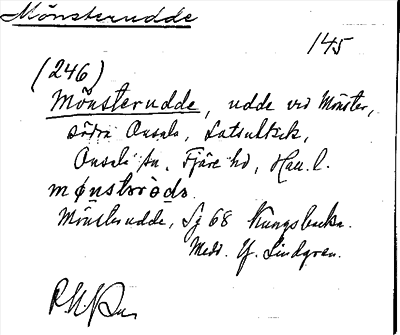 Mönsterudde
145
(246)
Mönsterudde, udde vid Mönster,
södra Onsala,
Onsala sn, Fjäre hd, Hall. l.
Mönsterudde, Sj 68 Kungsbacka.
Medd. Y. Lindgren.